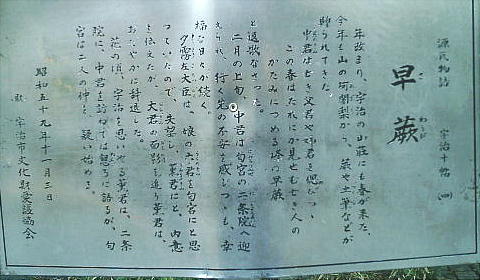 源氏物語
宇治十帖 (四)
早蕨
さわらび
年改まり、宇治の山荘にも春が来た。
今年も山の阿闍梨から、蕨や土筆などが
贈られてきた。
中君は亡き父君や姉君を偲びつゝ、
この春はたれにか見せむ亡き人の
かたみにつめる峰の早蕨
と返歌なさった。
二月の上旬、中君は匂宮の二条院へ迎
えられ、行く先の不安を感じつゝも、幸
福な日々が続く。
夕霧左大臣は、娘の六君を匂宮にと思
っていたので、失望し、薫君にと、内意
を伝えたが、大君の面影を追う薫君は、
おだやかに辞退した。
花の頃、宇治を思いやる薫君は、二条
院に、中君を訪ねては懇ろに語るが、匂
宮は二人の仲を、疑い始める。
昭和五十九年十一月三日
宇治市文化財愛護協会